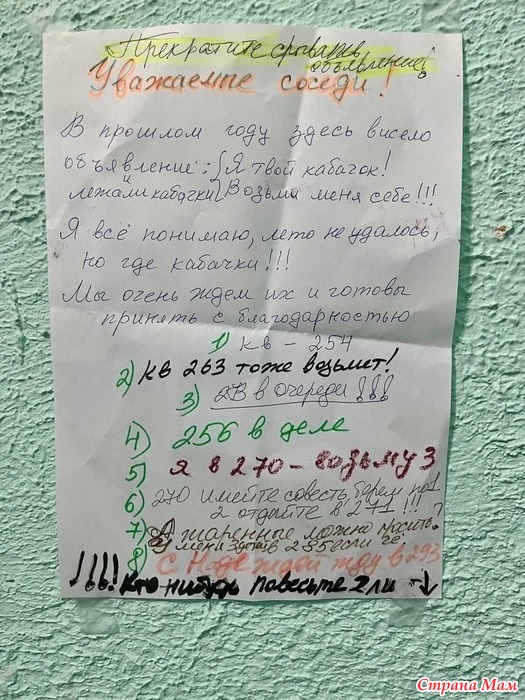 Прекратите срывать
объявление!
Уважаемые соседи!
В прошлом году здесь висело
объявление: Я твой кабачок!
лежали кабачки Возьми меня себе!!!
Я всё понимаю, лето не удалось,
но где кабачки!!!
Мы очень ждем их и готовы
принять с благодарностью
1) кв - 254
2) кв 263 тоже возьмет!
3) 2В в очереди!!!
4) 256 в деле
5) я в 270 - возьму 3
6) 270 имейте совесть, берем по 1
2 отдайте в 271!!!
7) А жаренные можно носить?
У меня 285 если чё.
8) С Надеждой жду в 293
↓!!!! Кто нибудь повесьте 2 ли ↓
Страна Мам